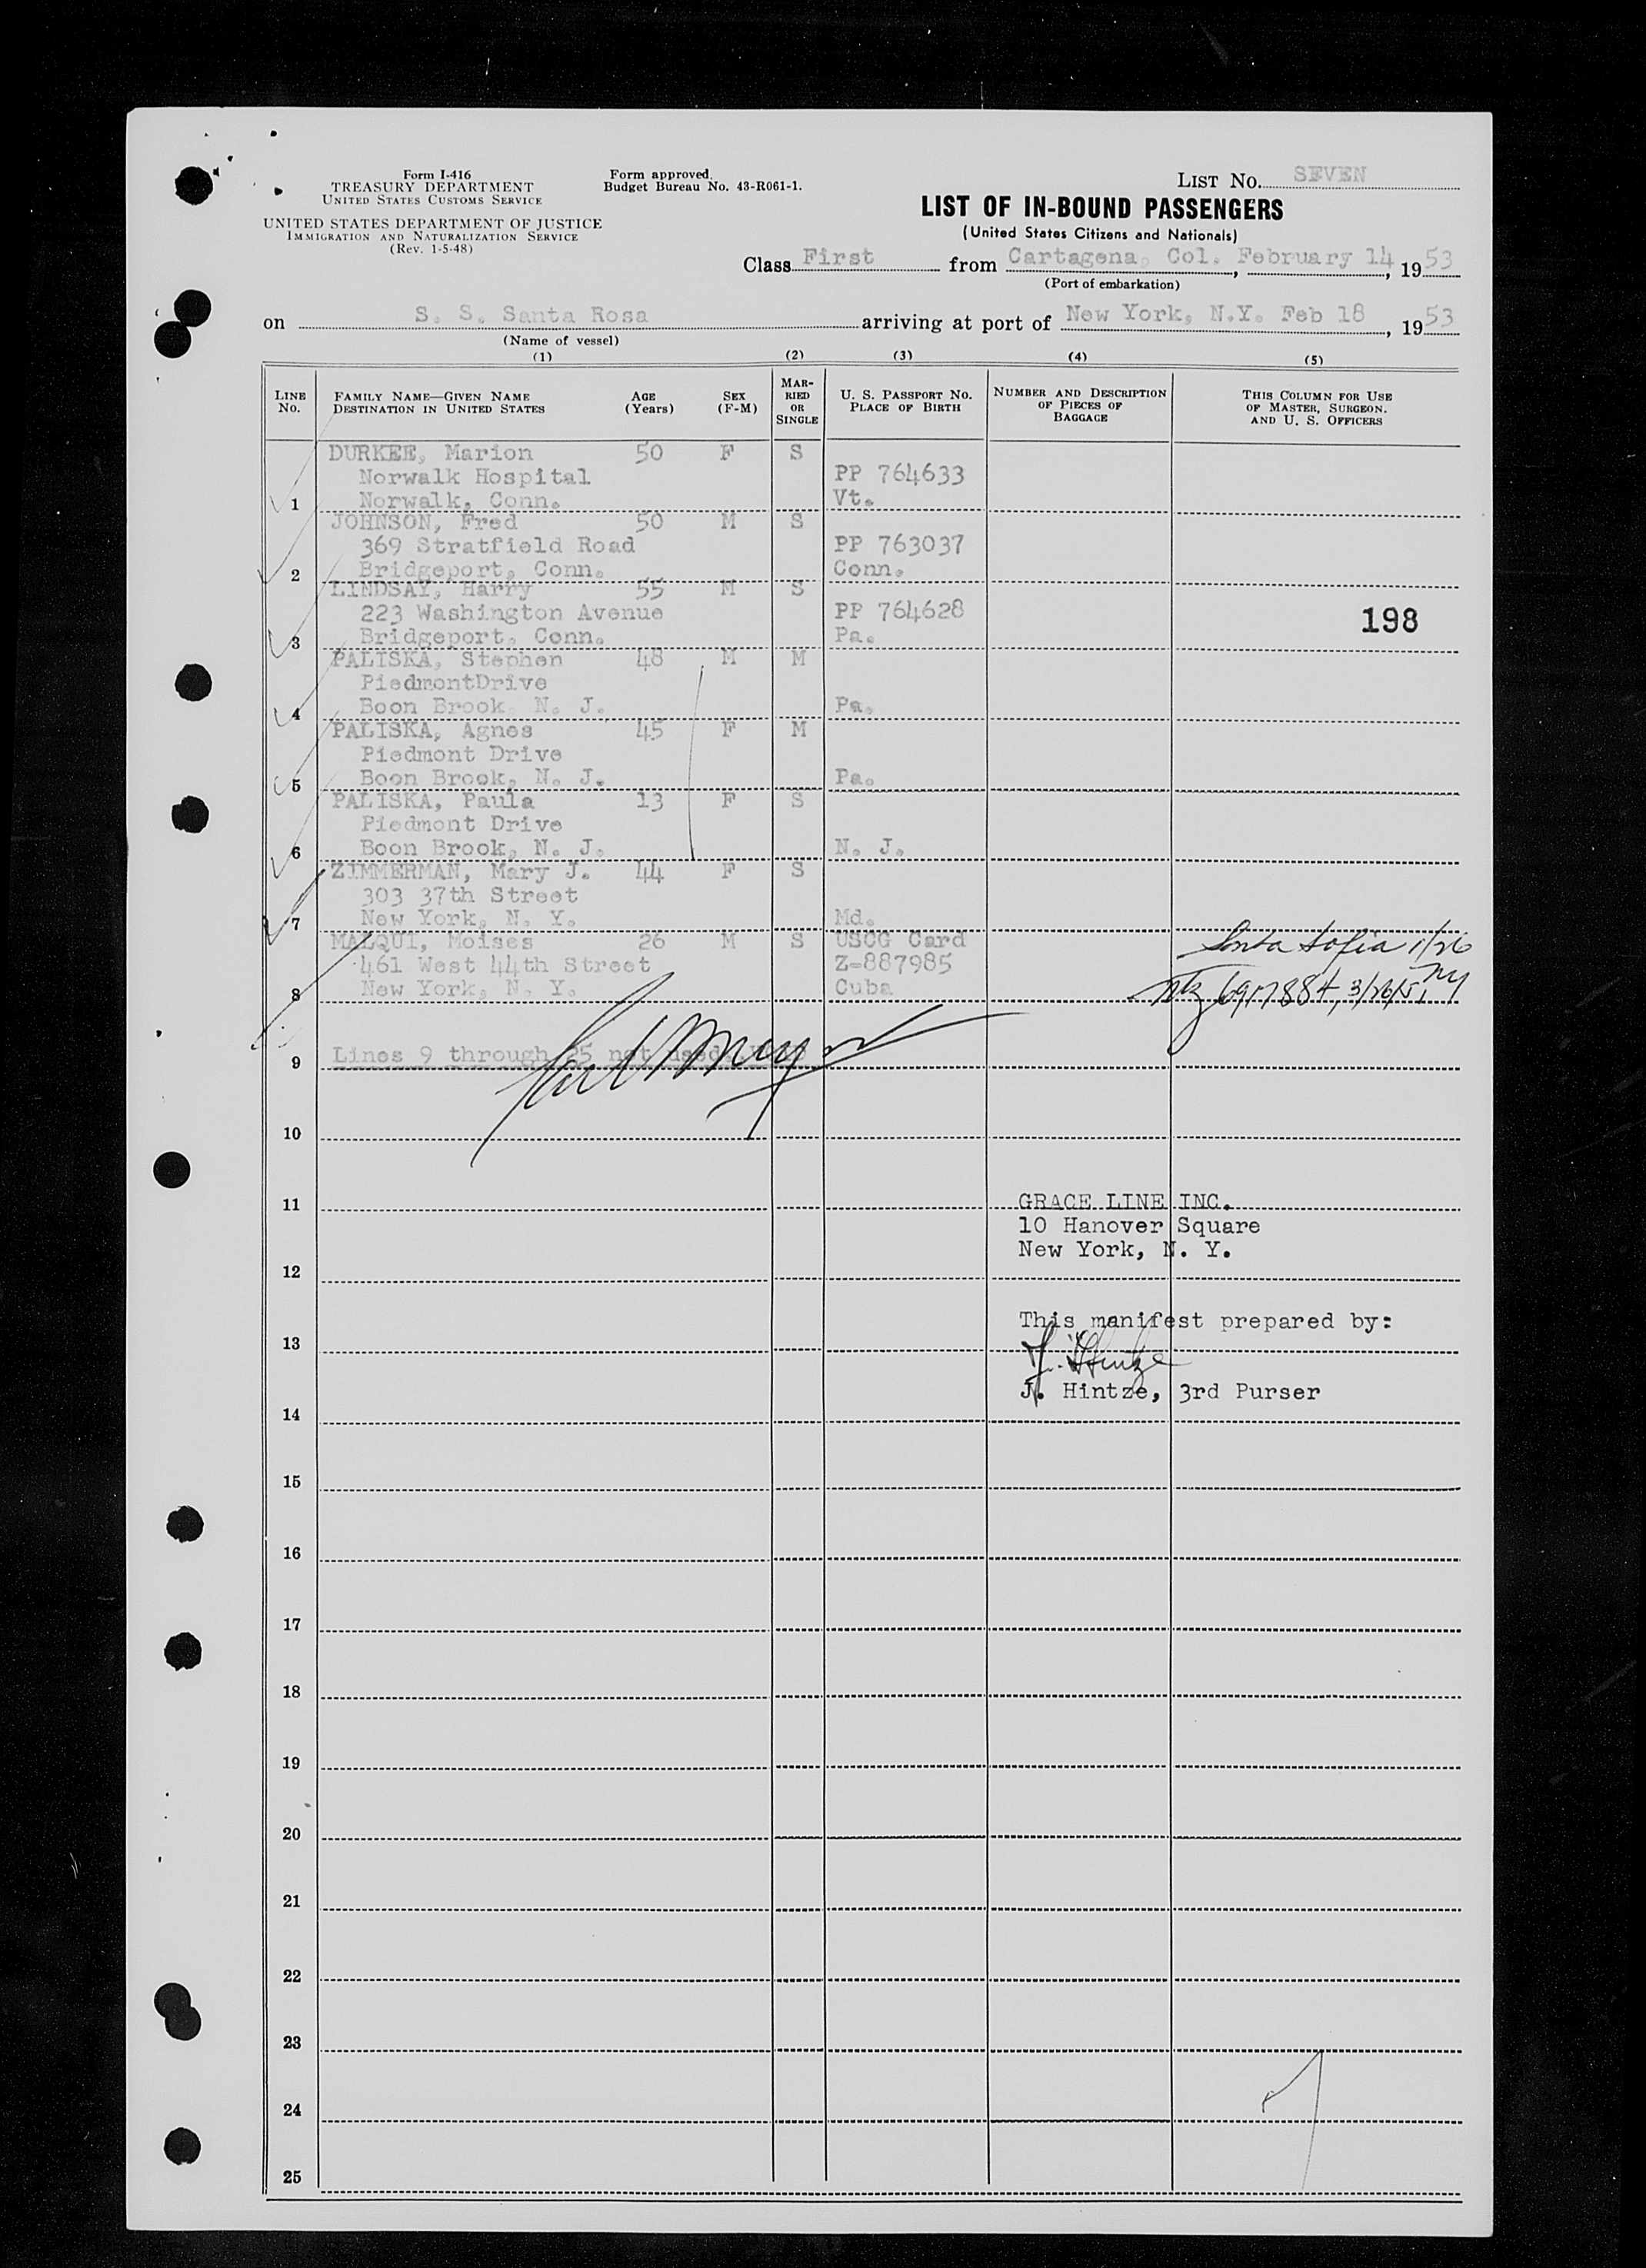 Form I-416
TREASURY DEPARTMENT
UNITED STATES CUSTOMS SERVICE
UNITED STATES DEPARTMENT OF JUSTICE
IMMIGRATION AND NATURALIZATION SERVICE
(Rev. 1-5-48)
Form approved.
Budget Bureau No. 43-R061-1.
LIST No. SEVEN
LIST OF IN-BOUND PASSENGERS
(United States Citizens and Nationals)
Class First from Cartagena, Col. , February 14, 1953
(Port of embarkation)
on S. S. Santa Rosa arriving at port of New York, N.Y. Feb 18, 1953
(Name of vessel)
(1) (2) (3) (4) (5)
LINE No.
FAMILY NAME—GIVEN NAME
DESTINATION IN UNITED STATES
AGE (Years)
SEX (F-M)
MARRIED OR SINGLE
U. S. PASSPORT NO.
PLACE OF BIRTH
NUMBER AND DESCRIPTION OF PIECES OF BAGGAGE
THIS COLUMN FOR USE OF MASTER, SURGEON, AND U. S. OFFICERS
DURKEE, Marion 50 F S
Norwalk Hospital PP 764633
1 Norwalk, Conn. Vt.
JOHNSON, Fred 50 M S
369 Stratfield Road PP 763037
2 Bridgeport, Conn. Conn.
LINDSAY, Harry 55 M S
223 Washington Avenue PP 764628 198
3 Bridgeport, Conn. Pa.
PALISKA, Stephen 48 M M
PiedmontDrive
4 Boon Brook N. J. Pa.
PALISKA, Agnes 45 F M
Piedmont Drive
5 Boon Brook, N. J. Pa.
PALISKA, Paula 13 F S
Piedmont Drive
6 Boon Brook, N. J. N. J.
ZIMMERMAN, Mary J. 44 F S
303 37th Street
7 New York, N. Y. Md.
MALQUI, Moises 26 M S USCG Card Santa Sofia 1/26
461 West 44th Street Z-887985 NY
8 New York, N. Y. Cuba 6917884, 3/26/51
9 Lines 9 through 25 not used.
10
11 GRACE LINE INC.
10 Hanover Square
New York, N. Y.
12
This manifest prepared by:
13
J. Hintze
J. Hintze, 3rd Purser
14
15
16
17
18
19
20
21
22
23
24
25